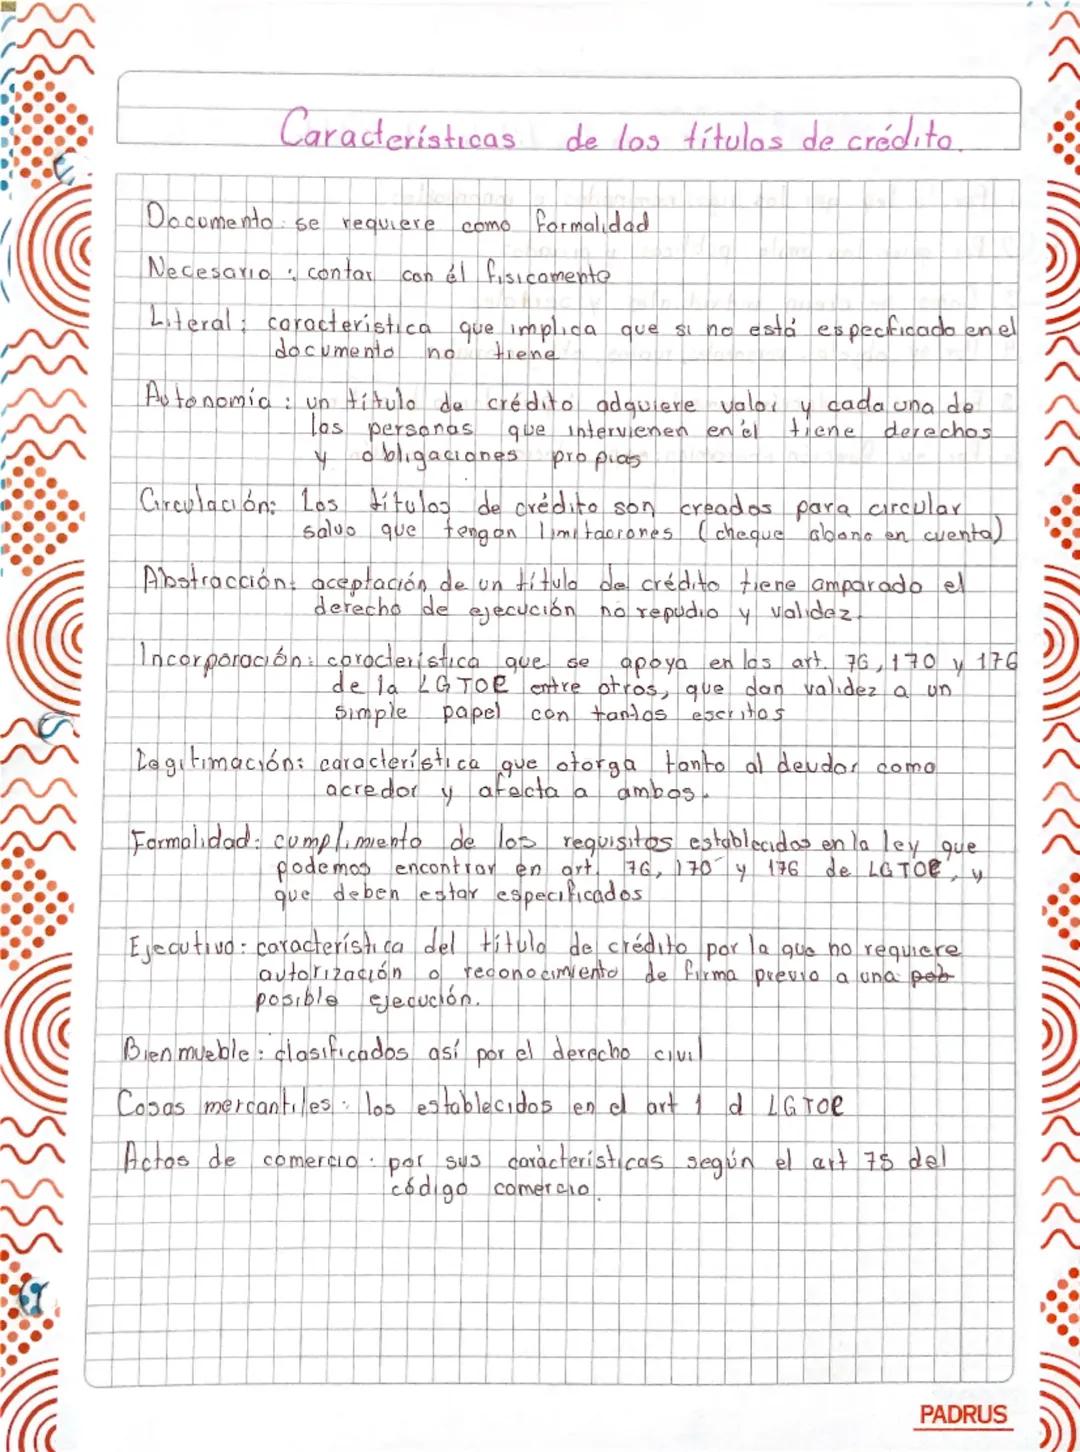 Características de los títulos de crédito.
Documento: se requiere como formalidad
Necesario: contar con él físicamente
Literal: característica que implica que si no está especificado en el
documento no tiene
Autonomía: un título de crédito adquiere valor y cada una de
las personas que intervienen en él tiene derechos
y obligaciones propias
Circulación: Los títulos de crédito son creados para circular
salvo que tengan limitaciones (cheque abono en cuenta)
Abstracción: aceptación de un título de crédito tiene amparado el
derecho de ejecución no repudio y validez.
Incorporación: característica que se apoya en los art. 76, 170 y 176
de la LGTOC entre otros, que dan validez a un
simple papel con tantos escritos
Legitimación: característica que otorga tanto al deudor como
acredor y afecta a ambos.
Formalidad: cumplimiento de los requisitos establecidos en la ley que
podemos encontrar en art. 76, 170 y 176 de LGTOC, y
que deben estar especificados
Ejecutivo: característica del título de crédito por la que no requiere
autorización o reconocimiento de firma previo a una pob
posible ejecución.
Bien mueble: clasificados así por el derecho civil
Cosas mercantiles: los establecidos en el art 1 d LGTOC
Actos de comercio: por sus características según el art 75 del
código comercio.
PADRUS